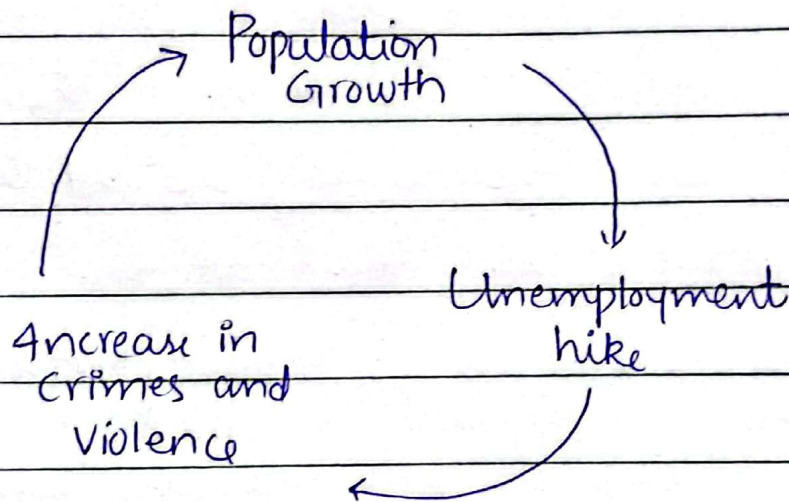 Population
Growth
Unemployment
hike
Increase in
Crimes and
Violence